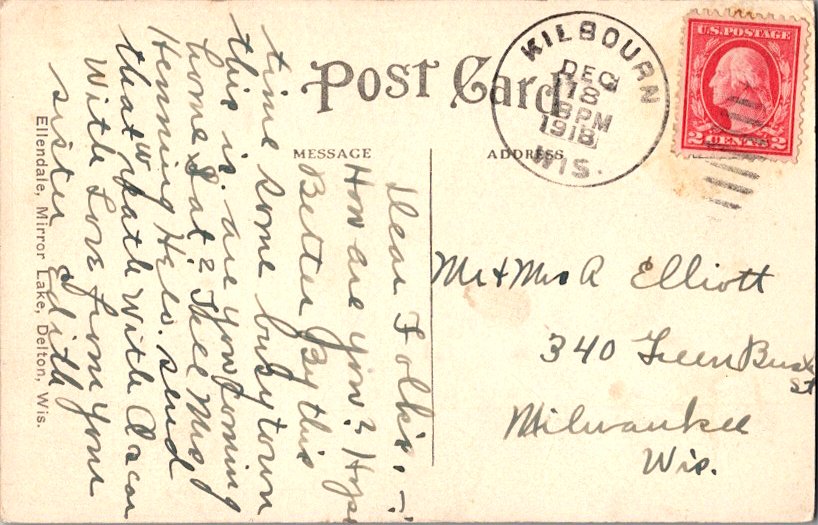 POST CARD
MESSAGE
ADDRESS
KILBOURN
DEC
18
8 PM
1918
WIS.
U.S. POSTAGE
2 CENTS 2
Mr & Mrs A Elliott
340 Green Bush
St
Milwaukee
Wis.
Dear Folks, -
How are you? Hope
Better By this
time some busy town
this is. are you coming
home Sat? Thee Mrs
Henning Here. send
that wreath with Oscar
With Love from your
sister Edith
Ellendale, Mirror Lake, Delton, Wis.